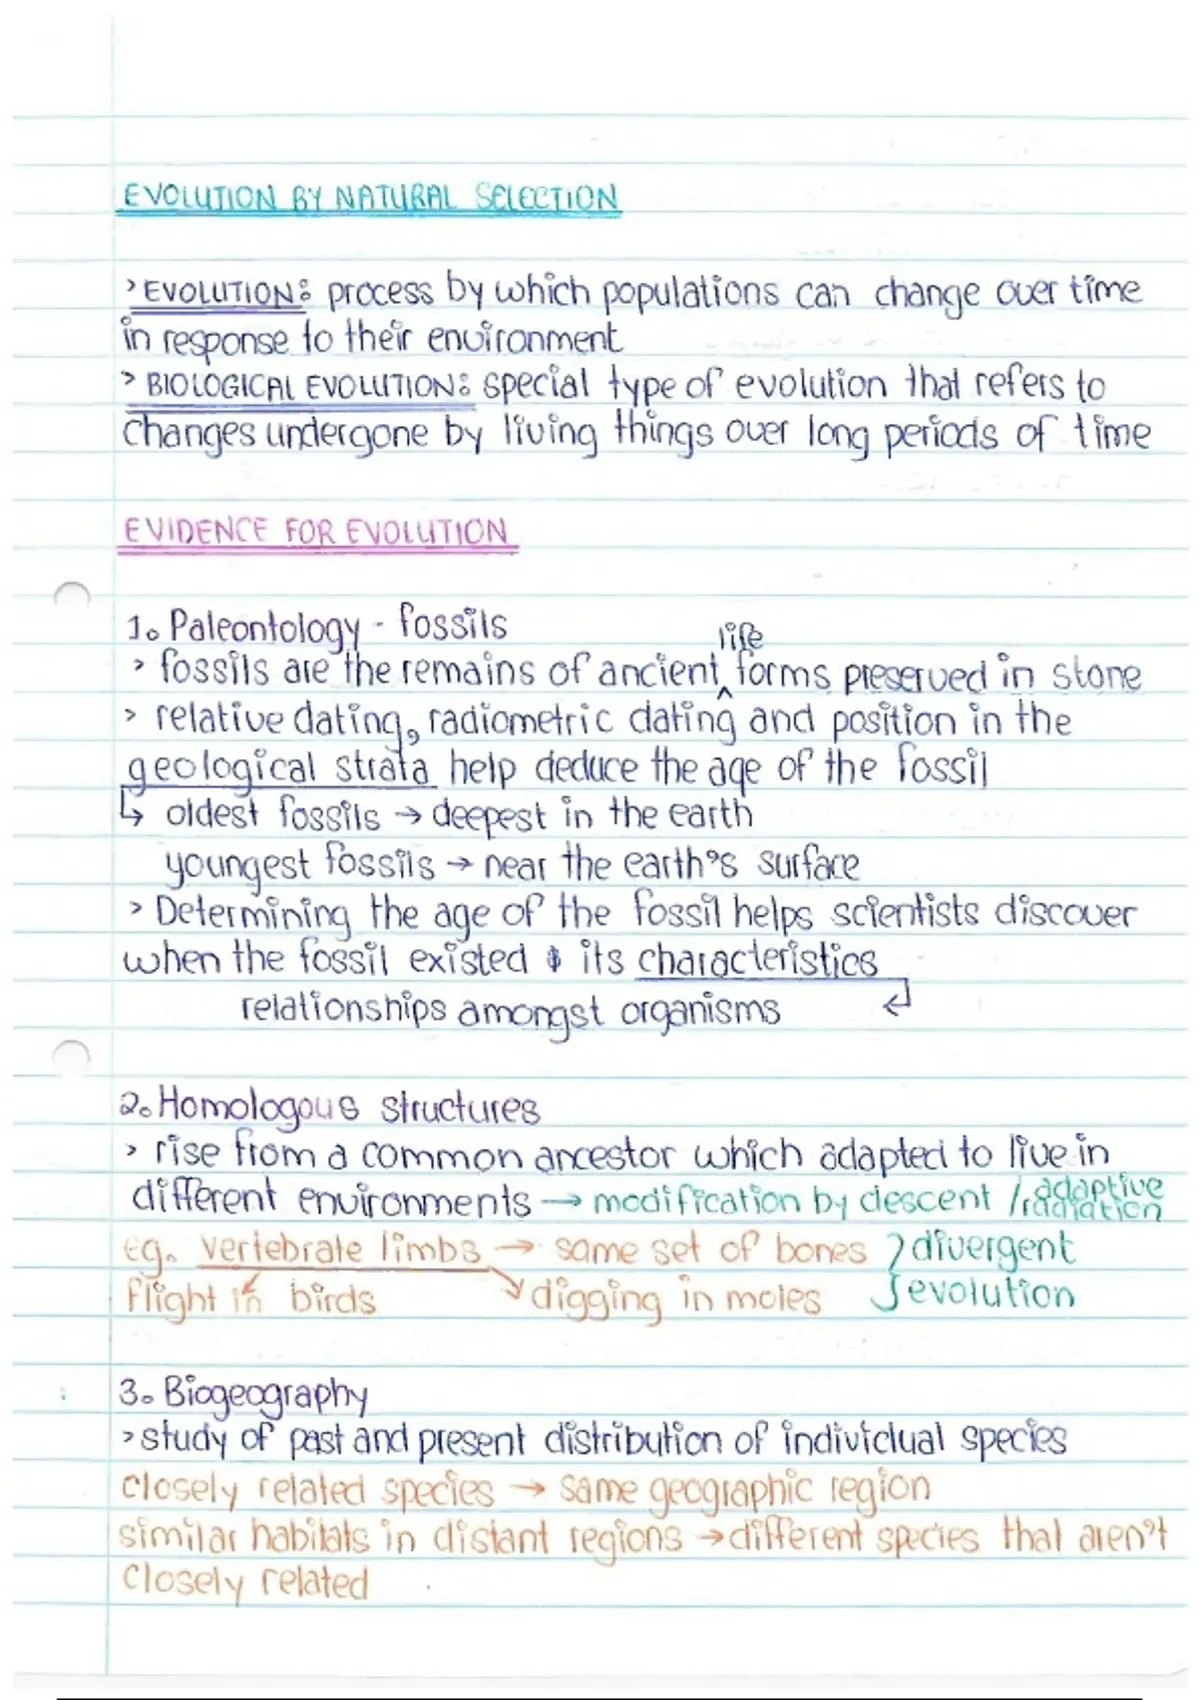 EVOLUTION BY NATURAL SELECTION
> EVOLUTION: process by which populations can change over time
in response to their environment
> BIOLOGICAL EVOLUTION: special type of evolution that refers to
changes undergone by living things over long periods of time
EVIDENCE FOR EVOLUTION
1. Paleontology - fossils
> fossils are the remains of ancient life forms preserved in stone
> relative dating, radiometric dating and position in the
geological strata help deduce the age of the fossil
↳ oldest fossils → deepest in the earth
youngest fossils → near the earth's surface
> Determining the age of the fossil helps scientists discover
when the fossil existed & its characteristics
relationships amongst organisms ↲
2. Homologous structures
> rise from a common ancestor which adapted to live in
different environments → modification by descent / adaptive radiation
eg. vertebrate limbs → same set of bones } divergent
flight in birds ↘ digging in moles } evolution
3. Biogeography
> study of past and present distribution of individual species
closely related species → same geographic region
similar habitats in distant regions → different species that aren't
closely related